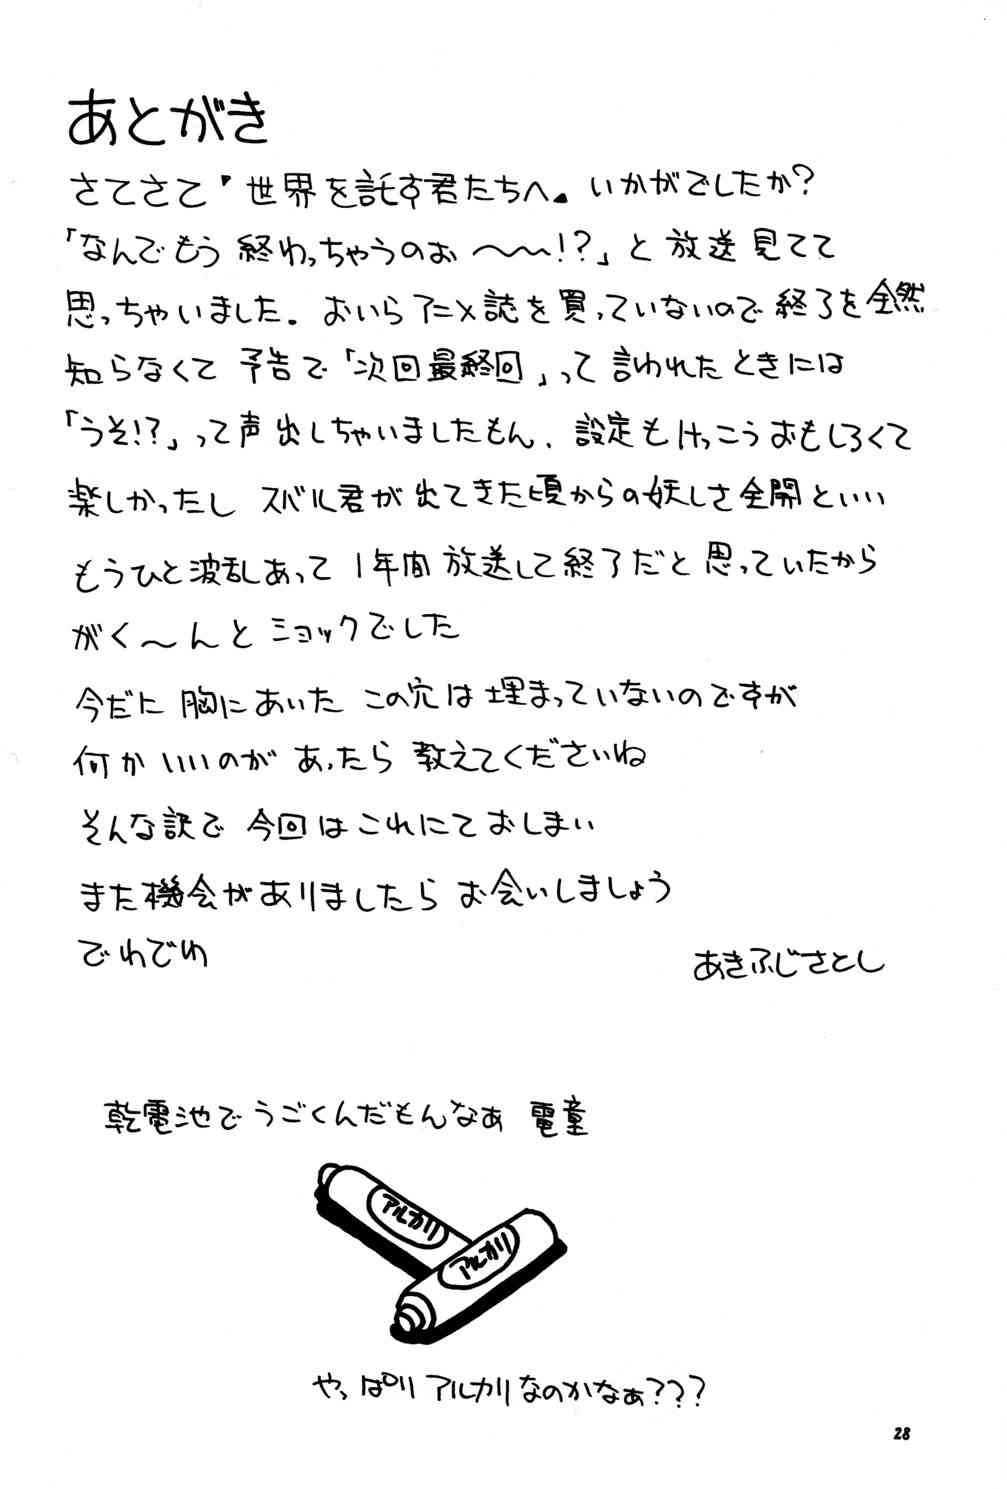 あとがき
さてさて『世界を託す君たちへ』いかがでしたか？
「なんでもう終わっちゃうのぉ〜〜!?」と放送見てて
思っちゃいました。おいらアニメ誌を買っていないので終了を全然
知らなくて予告で「次回最終回」って言われたときには
「うそ!?」って声出しちゃいましたもん。設定もけっこうおもしろくて
楽しかったし スバル君が出てきた頃からの妖しさ全開といい
もうひと波乱あって 1年間放送して終了だと思っていたから
がく〜んと ショックでした
今だに 胸にあいた この穴は埋まっていないのですが
何かいいのが あったら 教えてくださいね
そんな訳で 今回はこれにておしまい
また機会がありましたら お会いしましょう
でわでわ
あきふじさとし
乾電池でうごくんだもんなぁ 電童
アルカリ
アルカリ
やっぱり アルカリなのかなぁ？？？
28